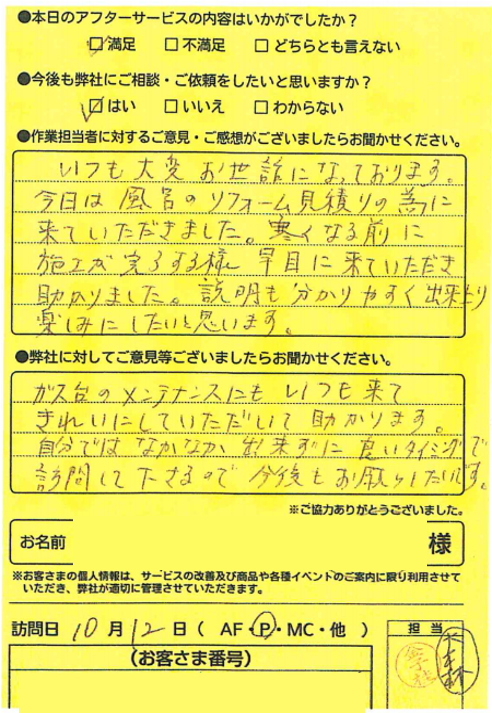 ●本日のアフターサービスの内容はいかがでしたか？
☑満足 □不満足 □どちらとも言えない
●今後も弊社にご相談・ご依頼をしたいと思いますか？
☑はい □いいえ □わからない
●作業担当者に対するご意見・ご感想がございましたらお聞かせください。
いつも大変お世話になっております。
今日は風呂のリフォーム見積りの為に
来ていただきました。寒くなる前に
施工が完了する様 早目に来ていただき
助かりました。説明も分かりやすく出来上り
楽しみにしたいと思います。
●弊社に対してご意見等ございましたらお聞かせください。
ガス台のメンテナンスにもいつも来て
きれいにしていただいて助かります。
自分ではなかなか出来ずに良いタイミングで
訪問して下さるので今後もお願いしたいです。
※ご協力ありがとうございました。
お名前 様
※お客さまの個人情報は、サービスの改善及び商品や各種イベントのご案内に限り利用させて
いただき、弊社が適切に管理させていただきます。
訪問日 10月12日（ AF・P・MC・他 ）
担当
（お客さま番号）